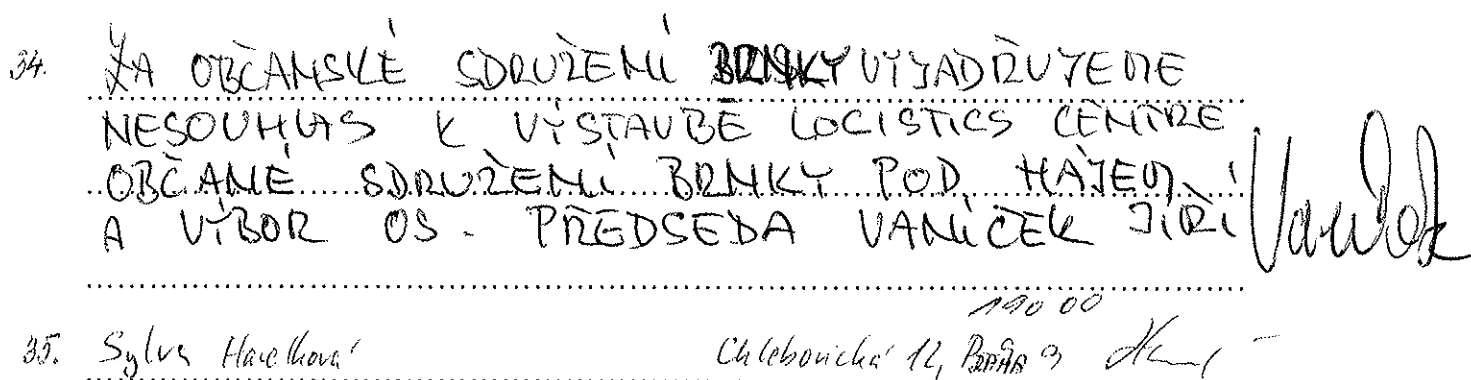 34. ZA OBČANSKÉ SDRUŽENÍ BRNKY VYJADŘUJEME
NESOUHLAS K VÝSTAVBĚ LOGISTICS CENTRE
OBČANÉ SDRUŽENÍ BRNKY POD HÁJEM
A VÝBOR OS. PŘEDSEDA VANÍČEK JIŘÍ
190 00
35. Sylva Havelková Chlebovická 12, Praha 9